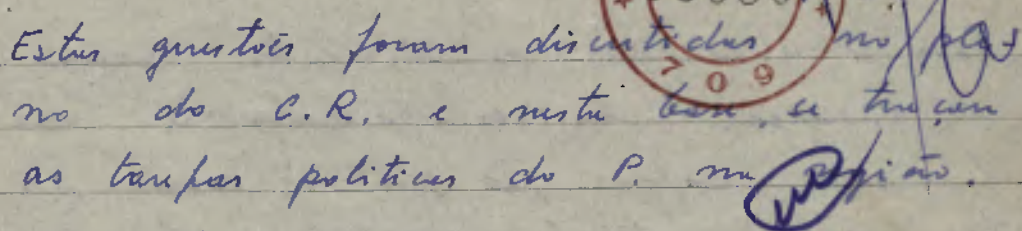 Estas questões foram discutidas no ple
no do C.R. e nesta base se traçam
as tarefas politicas do P. na região.
709